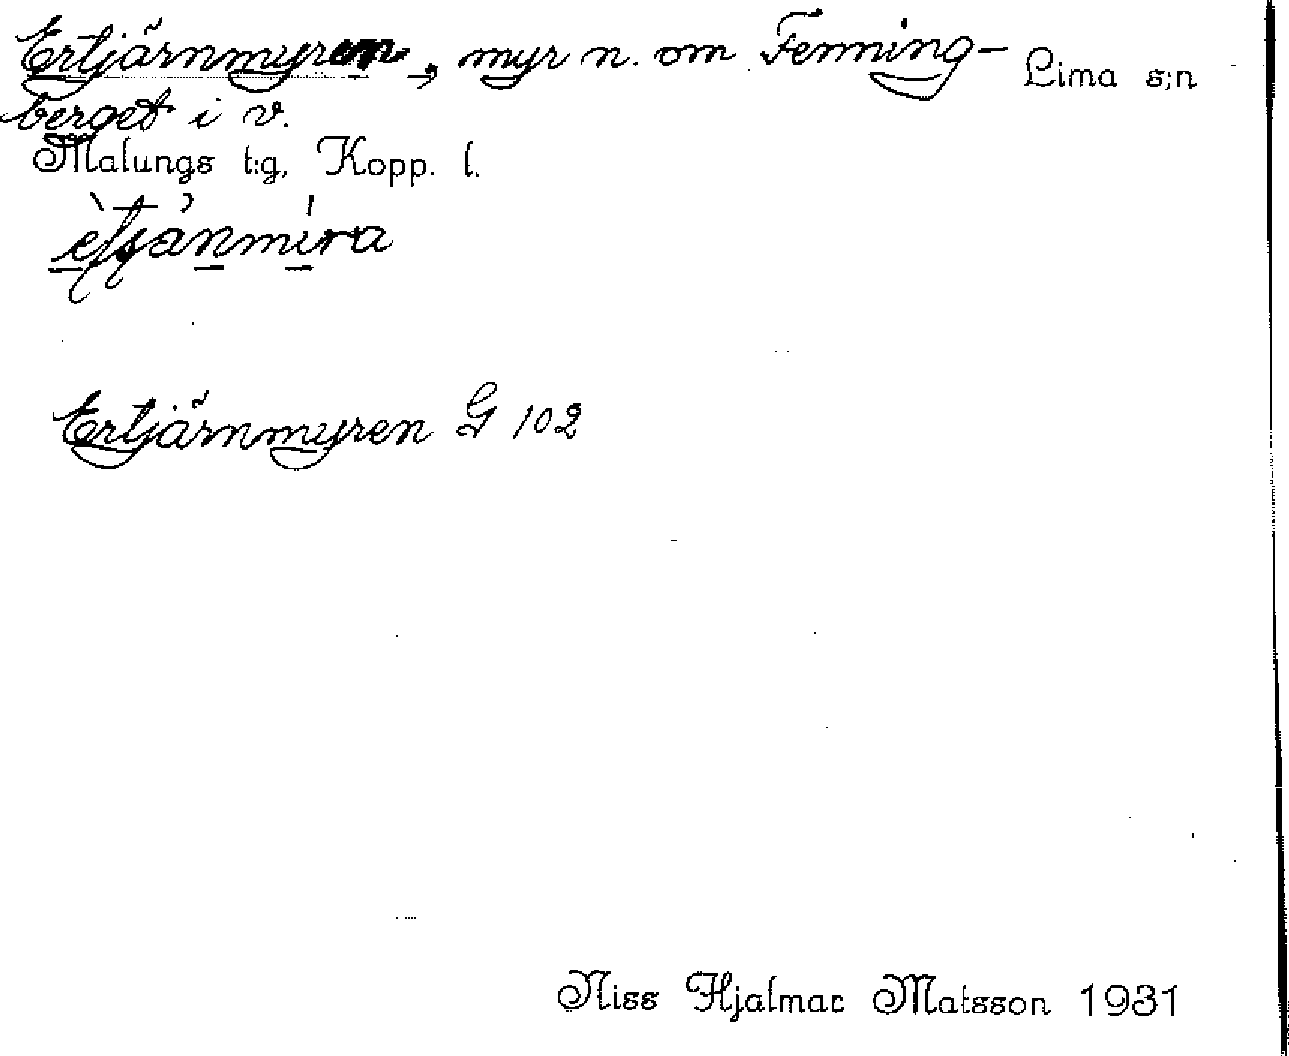 Ertjärnmyren, myr n. om Fenning- Lima s:n
berget i v.
Malungs t:g, Kopp. l.
Ertjärnmyren G 102
Niss Hjalmar Matsson 1931